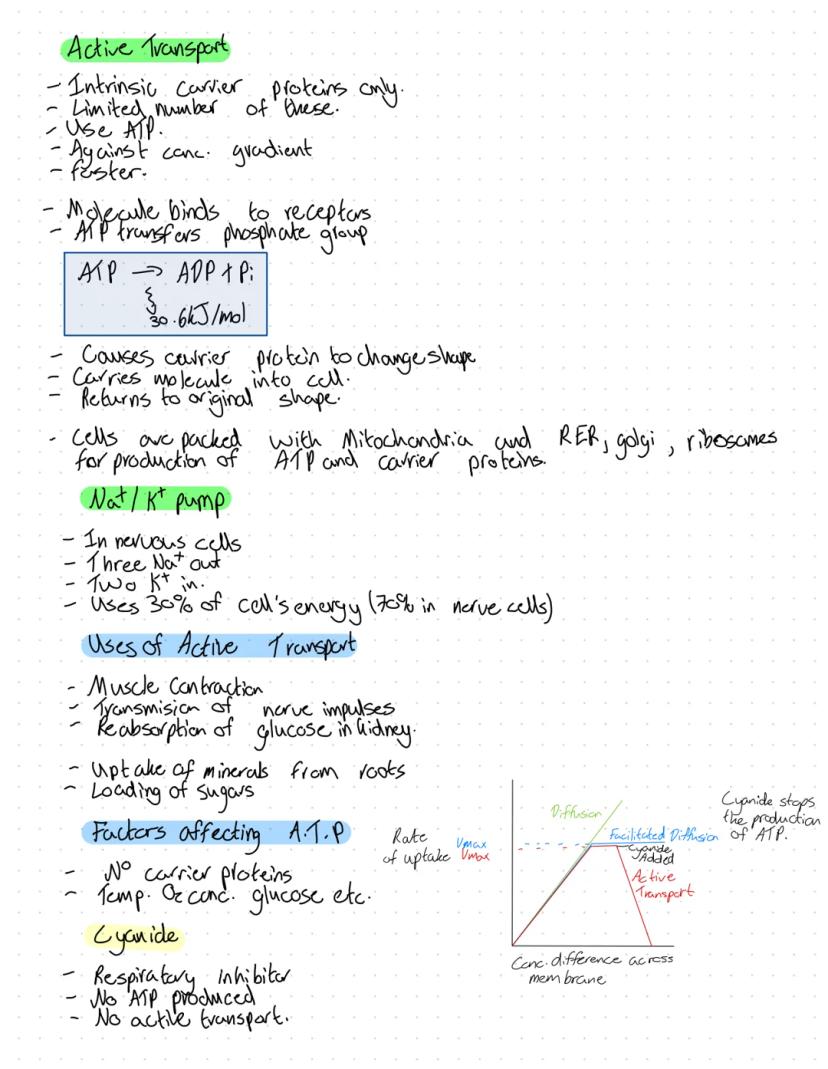 Active Transport
- Intrinsic carrier proteins only.
- Limited number of these.
- Use ATP.
- Against conc. gradient
- faster.
- Molecule binds to receptors
- ATP transfers phosphate group
ATP → ADP + Pi
30.6kJ/mol
- Causes carrier protein to change shape
- Carries molecule into cell.
- Returns to original shape.
- Cells are packed with Mitochondria and RER, golgi, ribosomes
for production of ATP and carrier proteins.
Na⁺/K⁺ pump
- In nervous cells
- Three Na⁺ out
- Two K⁺ in.
- Uses 30% of cell's energy (70% in nerve cells)
Uses of Active Transport
- Muscle Contraction
- Transmision of nerve impulses
- Reabsorption of glucose in kidney.
- Uptake of minerals from roots
- Loading of sugars
Factors affecting A.T.P
- Nº carrier proteins
- Temp. O₂ conc. glucose etc.
Cyanide
- Respiratory Inhibitor
- No ATP produced
- No active transport.
Rate
of uptake
Vmax
Vmax
Diffusion
Facilitated Diffusion
Cyanide
Added
Active
Transport
Cyanide stops
the production
of ATP.
Conc. difference across
membrane